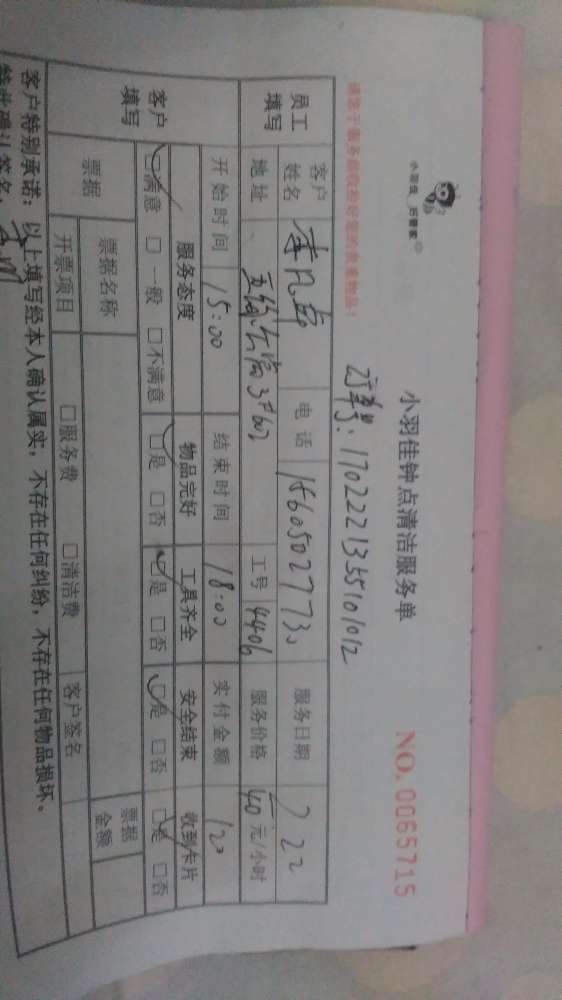 小羽佳 家管家
小羽佳钟点清洁服务单
NO. 0065715
订单号: 1702221355101012
请您于服务前收拾好您的贵重物品!
员工填写 客户姓名 电话 15605027733 服务日期 2 22
地址 3#602 工号 4406 服务价格 40元/小时
开始时间 15:00 结束时间 18:00 实付金额 120
客户填写 服务态度 物品完好 工具齐全 安全结束 收到卡片
□满意 □一般 □不满意 □是 □否 □是 □否 □是 □否 □是 □否
票据 票据名称 票据金额
开票项目 □服务费 □清洁费 客户签名
客户特别承诺: 以上填写经本人确认属实, 不存在任何纠纷, 不存在任何物品损坏。
特此确认签名: